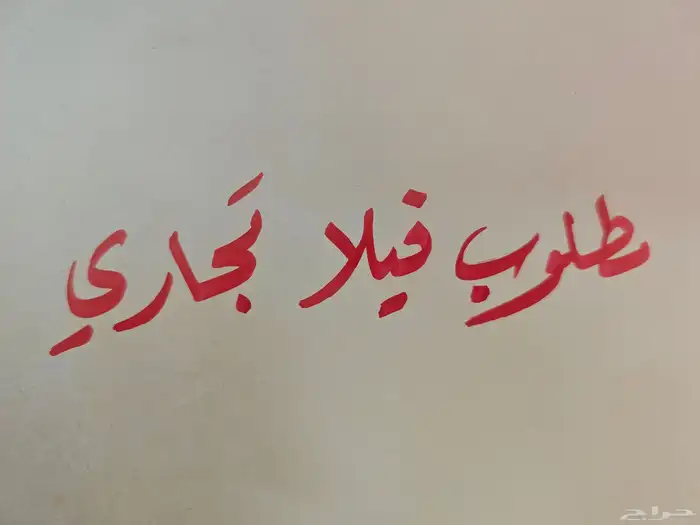 مطلوب فيلا تجاري
حراج